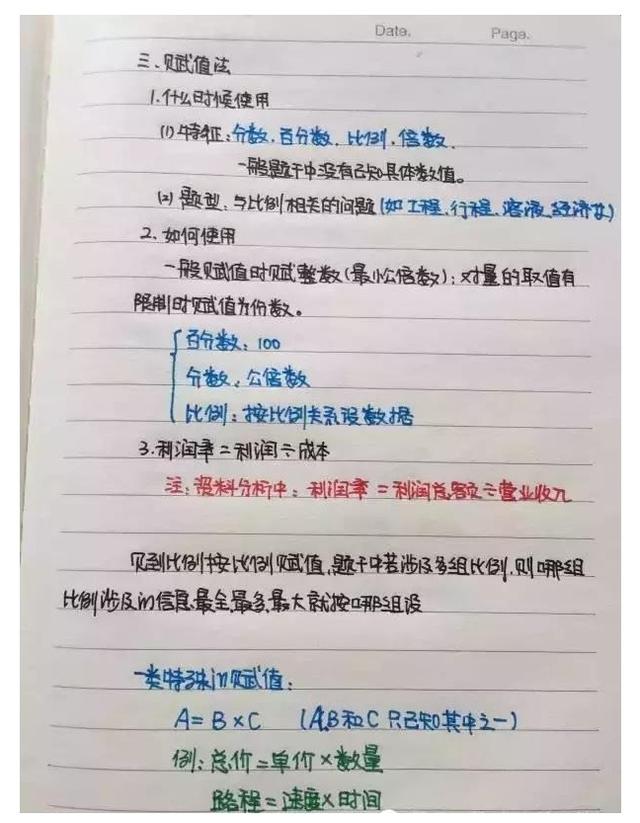 Date.
Page.
三、赋值法
1.什么时候使用
(1)特征:分数、百分数、比例、倍数、
一般题干中没有已知具体数值。
(2)题型:与比例相关的问题(如工程、行程、溶液、经济等)
2.如何使用
一般赋值时赋整数(最小公倍数);对量的取值有
限制时赋值为份数。
百分数:100
分数:公倍数
比例:按比例关系设数据
3.利润率=利润÷成本
注:资料分析中:利润率=利润总额÷营业收入
见到比例按比例赋值,题干中若涉及多组比例,则哪组
比例涉及的信息最全最多最大就按哪组设
一类特殊的赋值:
A=B×C (A,B和C只已知其中之一)
例:总价=单价×数量
路程=速度×时间